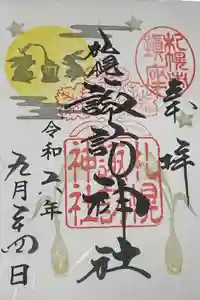 奉拝
札幌
諏訪神社
令和六年
九月二十四日
札幌
諏訪
神社